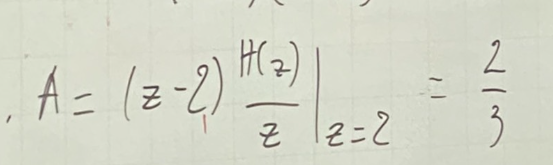 , A = (z-2) H(z)/z |z=2 = 2/3